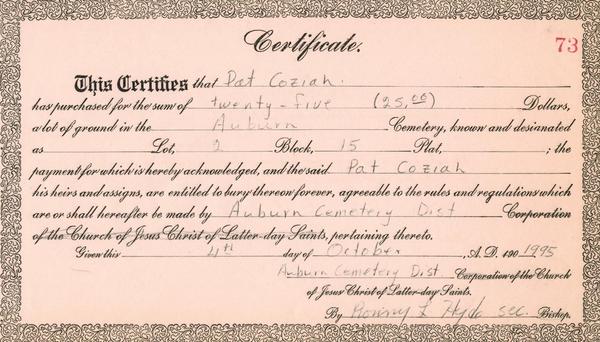 Certificate.
73
This Certifies that Pat Coziah.
has purchased for the sum of twenty-five (25.00) Dollars,
a lot of ground in the Auburn Cemetery, known and desianated
as Lot, 2 Block, 15 Plat, ; the
payment for which is hereby acknowledged, and the said Pat Coziah
his heirs and assigns, are entitled to bury thereon forever, agreeable to the rules and regulations which
are or shall hereafter be made by Auburn Cemetery Dist Corporation
of the Church of Jesus Christ of Latter-day Saints, pertaining thereto.
Given this 4th day of October , A.D. 190 1995
Auburn Cemetery Dist Corporation of the Church
of Jesus Christ of Latter-day Saints.
By Ronny L Hyde sec. Bishop.